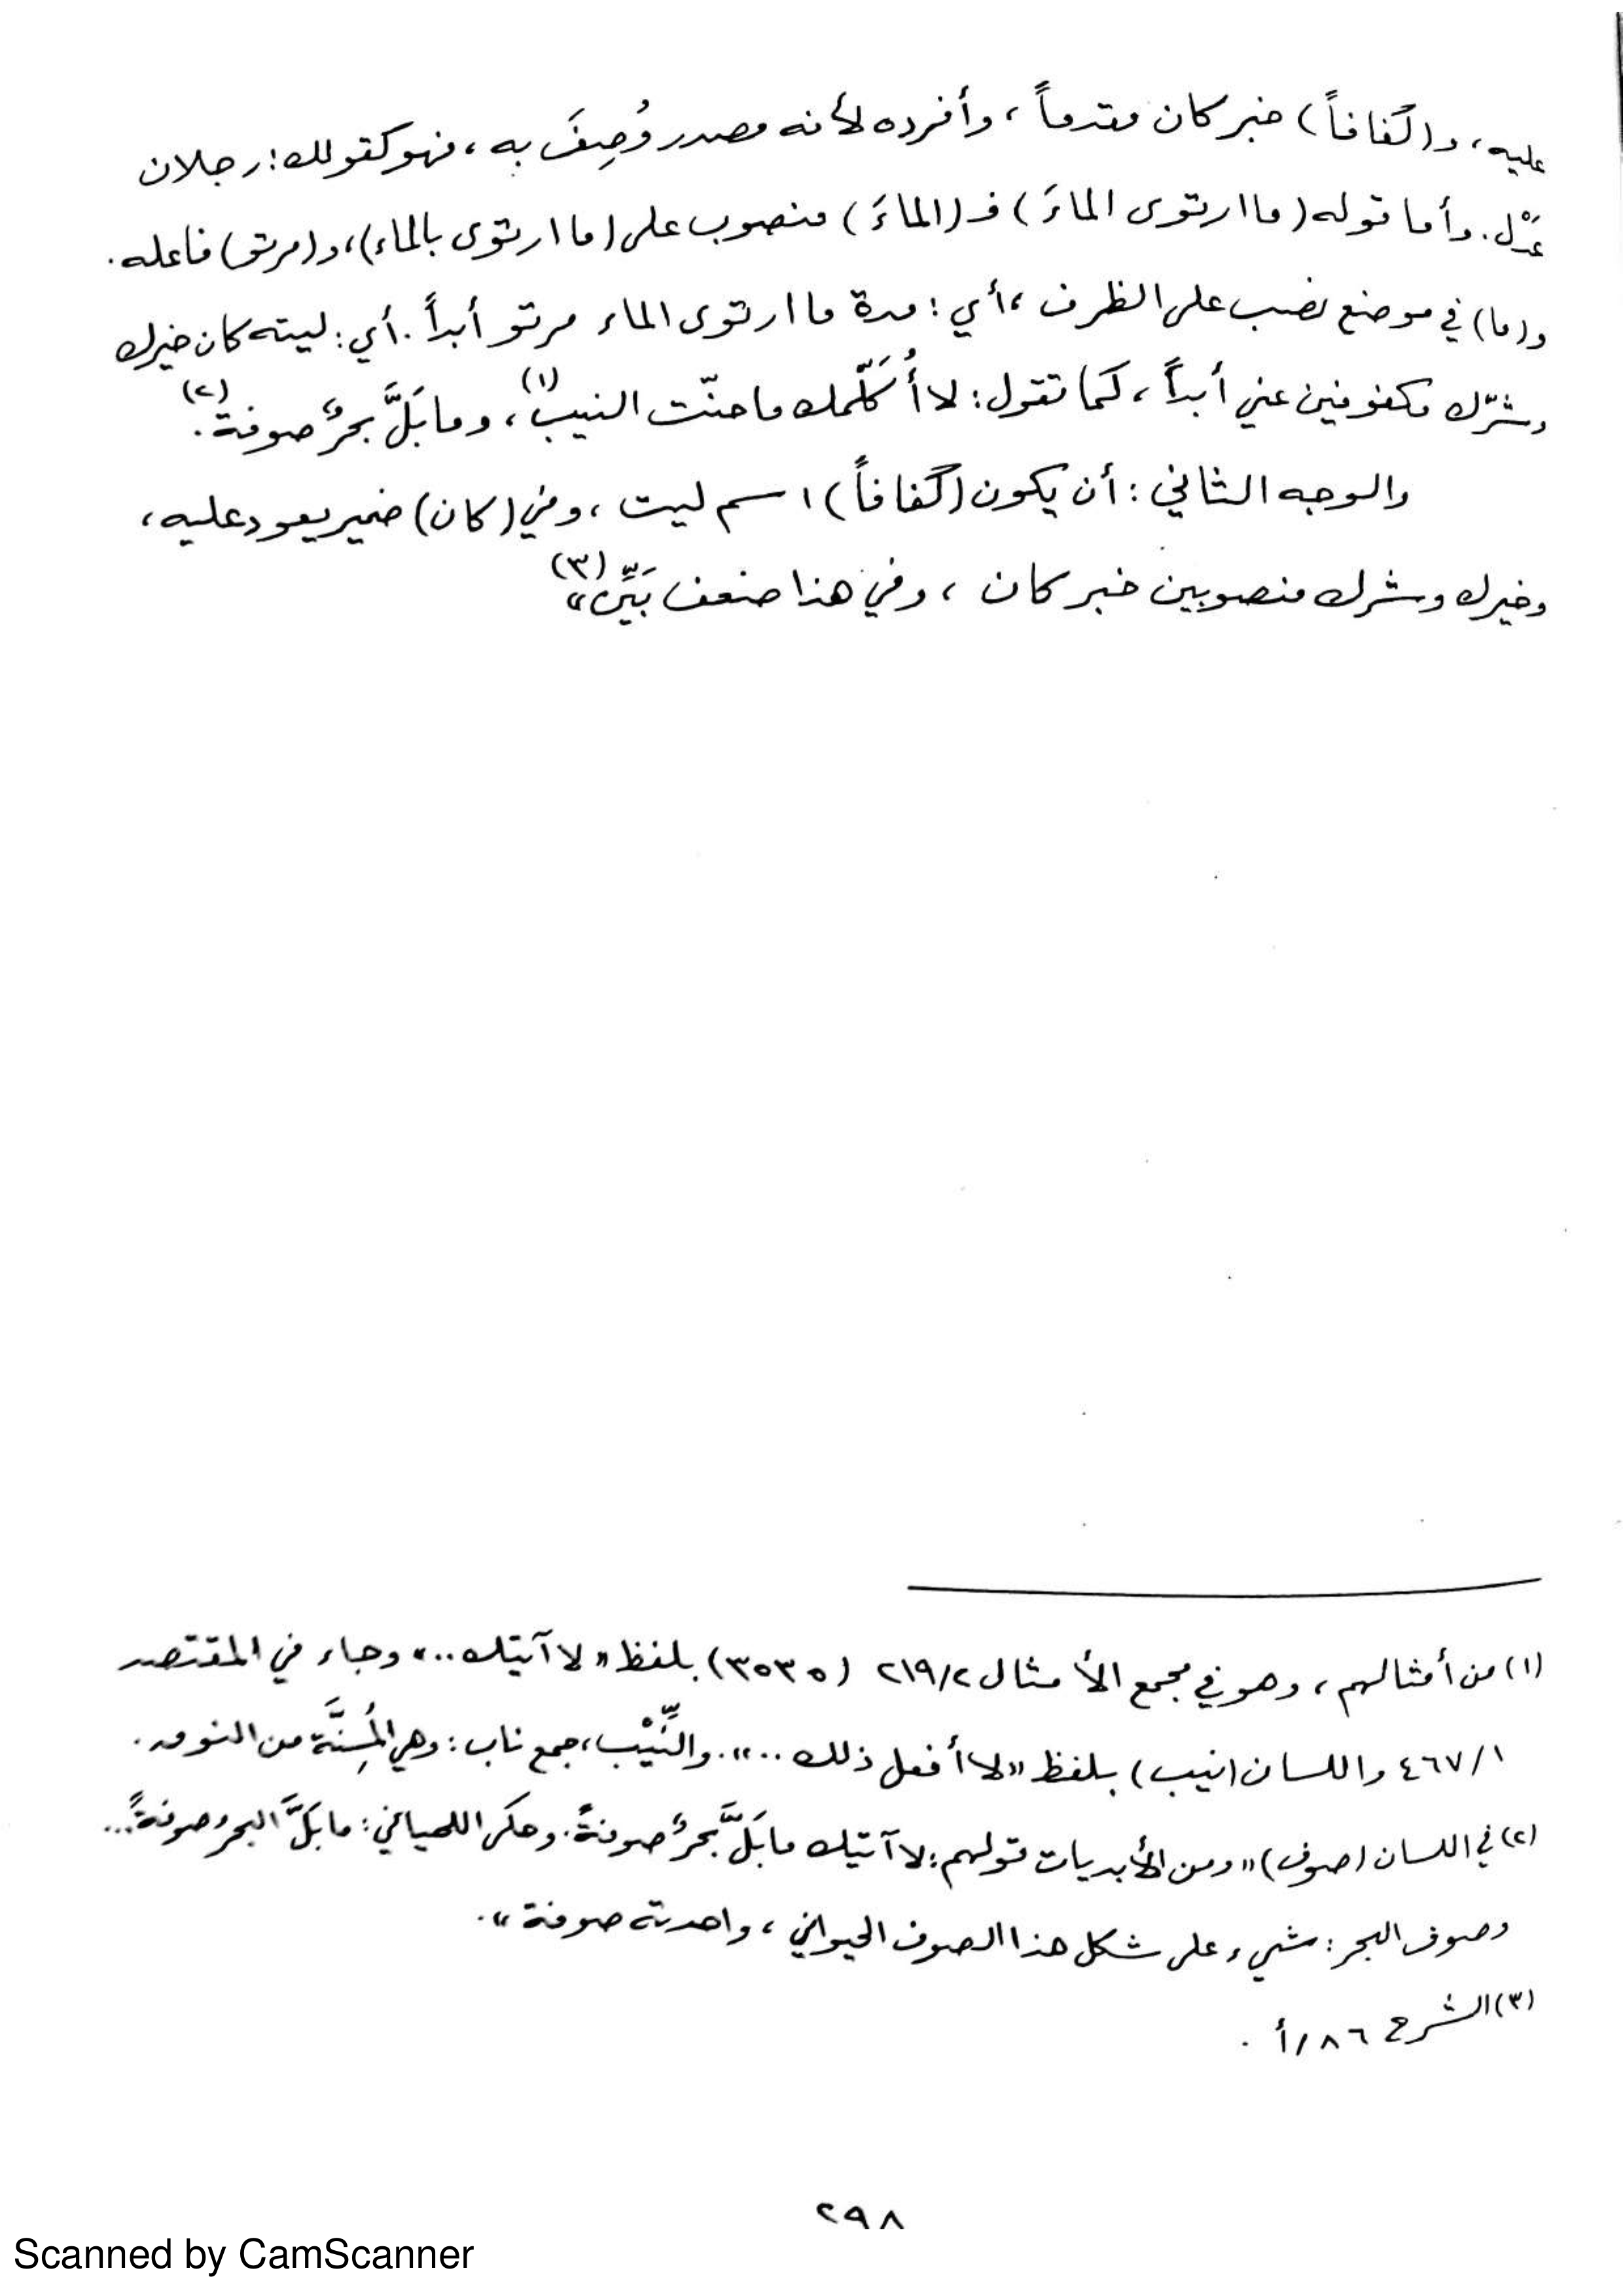 عليه، و(كَفافاً) خبر كان مقدماً، وأفرده لأنه مصدر وُصِفَ به، فهو كقولك: رجلان
عَدْل. وأما قوله (ما ارتوى الماءَ) فـ (الماءَ) منصوب على (ما ارتوى بالماء)، و(مرتو) فاعله.
و(ما) في موضع نصب على الظرف، أي: مدة ما ارتوى الماء مرتو أبداً. أي: ليته كان خيرك
وشرّك مكفوفين عني أبداً، كما تقول: لا أُكَلّمك ما حنّت النيب(١)، وما بَلَّ بحرٌ صوفة(٢).
والوجه الثاني: أن يكون (كَفافاً) اسم ليت، وفي (كان) ضمير يعود عليه،
وخيرك وشرك منصوبين خبر كان، وفي هذا ضعف بَيِّن»(٣)
(١) من أمثالهم، وهو في مجمع الأمثال ٢١٩/٢ (٣٥٣٥) بلفظ «لا آتيك..» وجاء في المقتصد
٤٦٧/١ واللسان (نيب) بلفظ «لا أفعل ذلك...». والنِّيْب، جمع ناب: وهي المُسِنَّة من النوق.
(٢) في اللسان (صوف) «ومن الأبديات قولهم: لا آتيك ما بَلَّ بحرٌ صوفةً. وحكى اللحياني: ما بَلَّ البحرُ صوفةً...
وصوف البحر: شيء على شكل هذا الصوف الحيواني، واحدته صوفة».
(٣) الشرح ٨٦/أ.
٢٩٨
Scanned by CamScanner